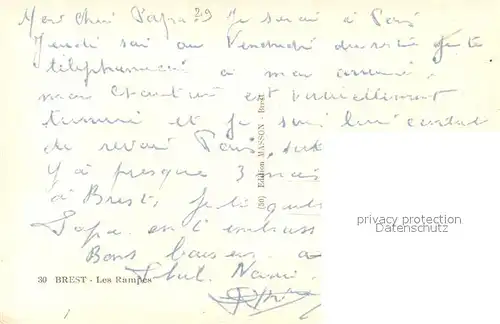 Mon Cher Papa 29 Je serai à Paris
Jeudi soir ou Vendredi je te
téléphonerai à mon arrivée.
mon est partiellement
terminé et je suis bien content
de revoir Paris,
Y a presque 3 mois
à Brest, Je te quitte
Papa en t'embrass
Bons baisers à
30 BREST - Les Rampes
(30) Edition MASSON - Brest
privacy protection
Datenschutz